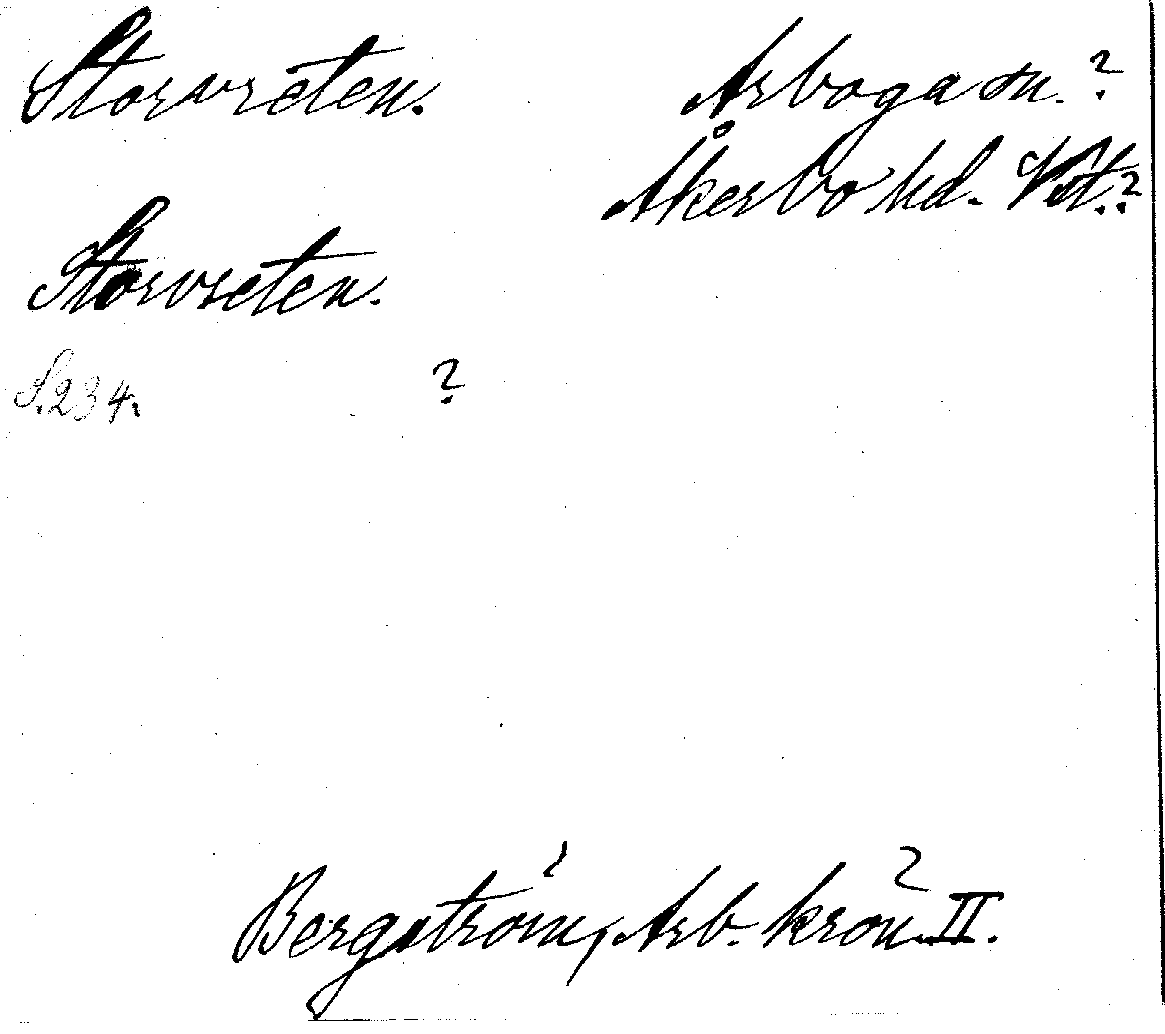 Storvreten. Arboga sn.?
Åkerbo hd. Vstl.?
Storvreten.
S. 234. ?
Bergström, Arb. krön. II.